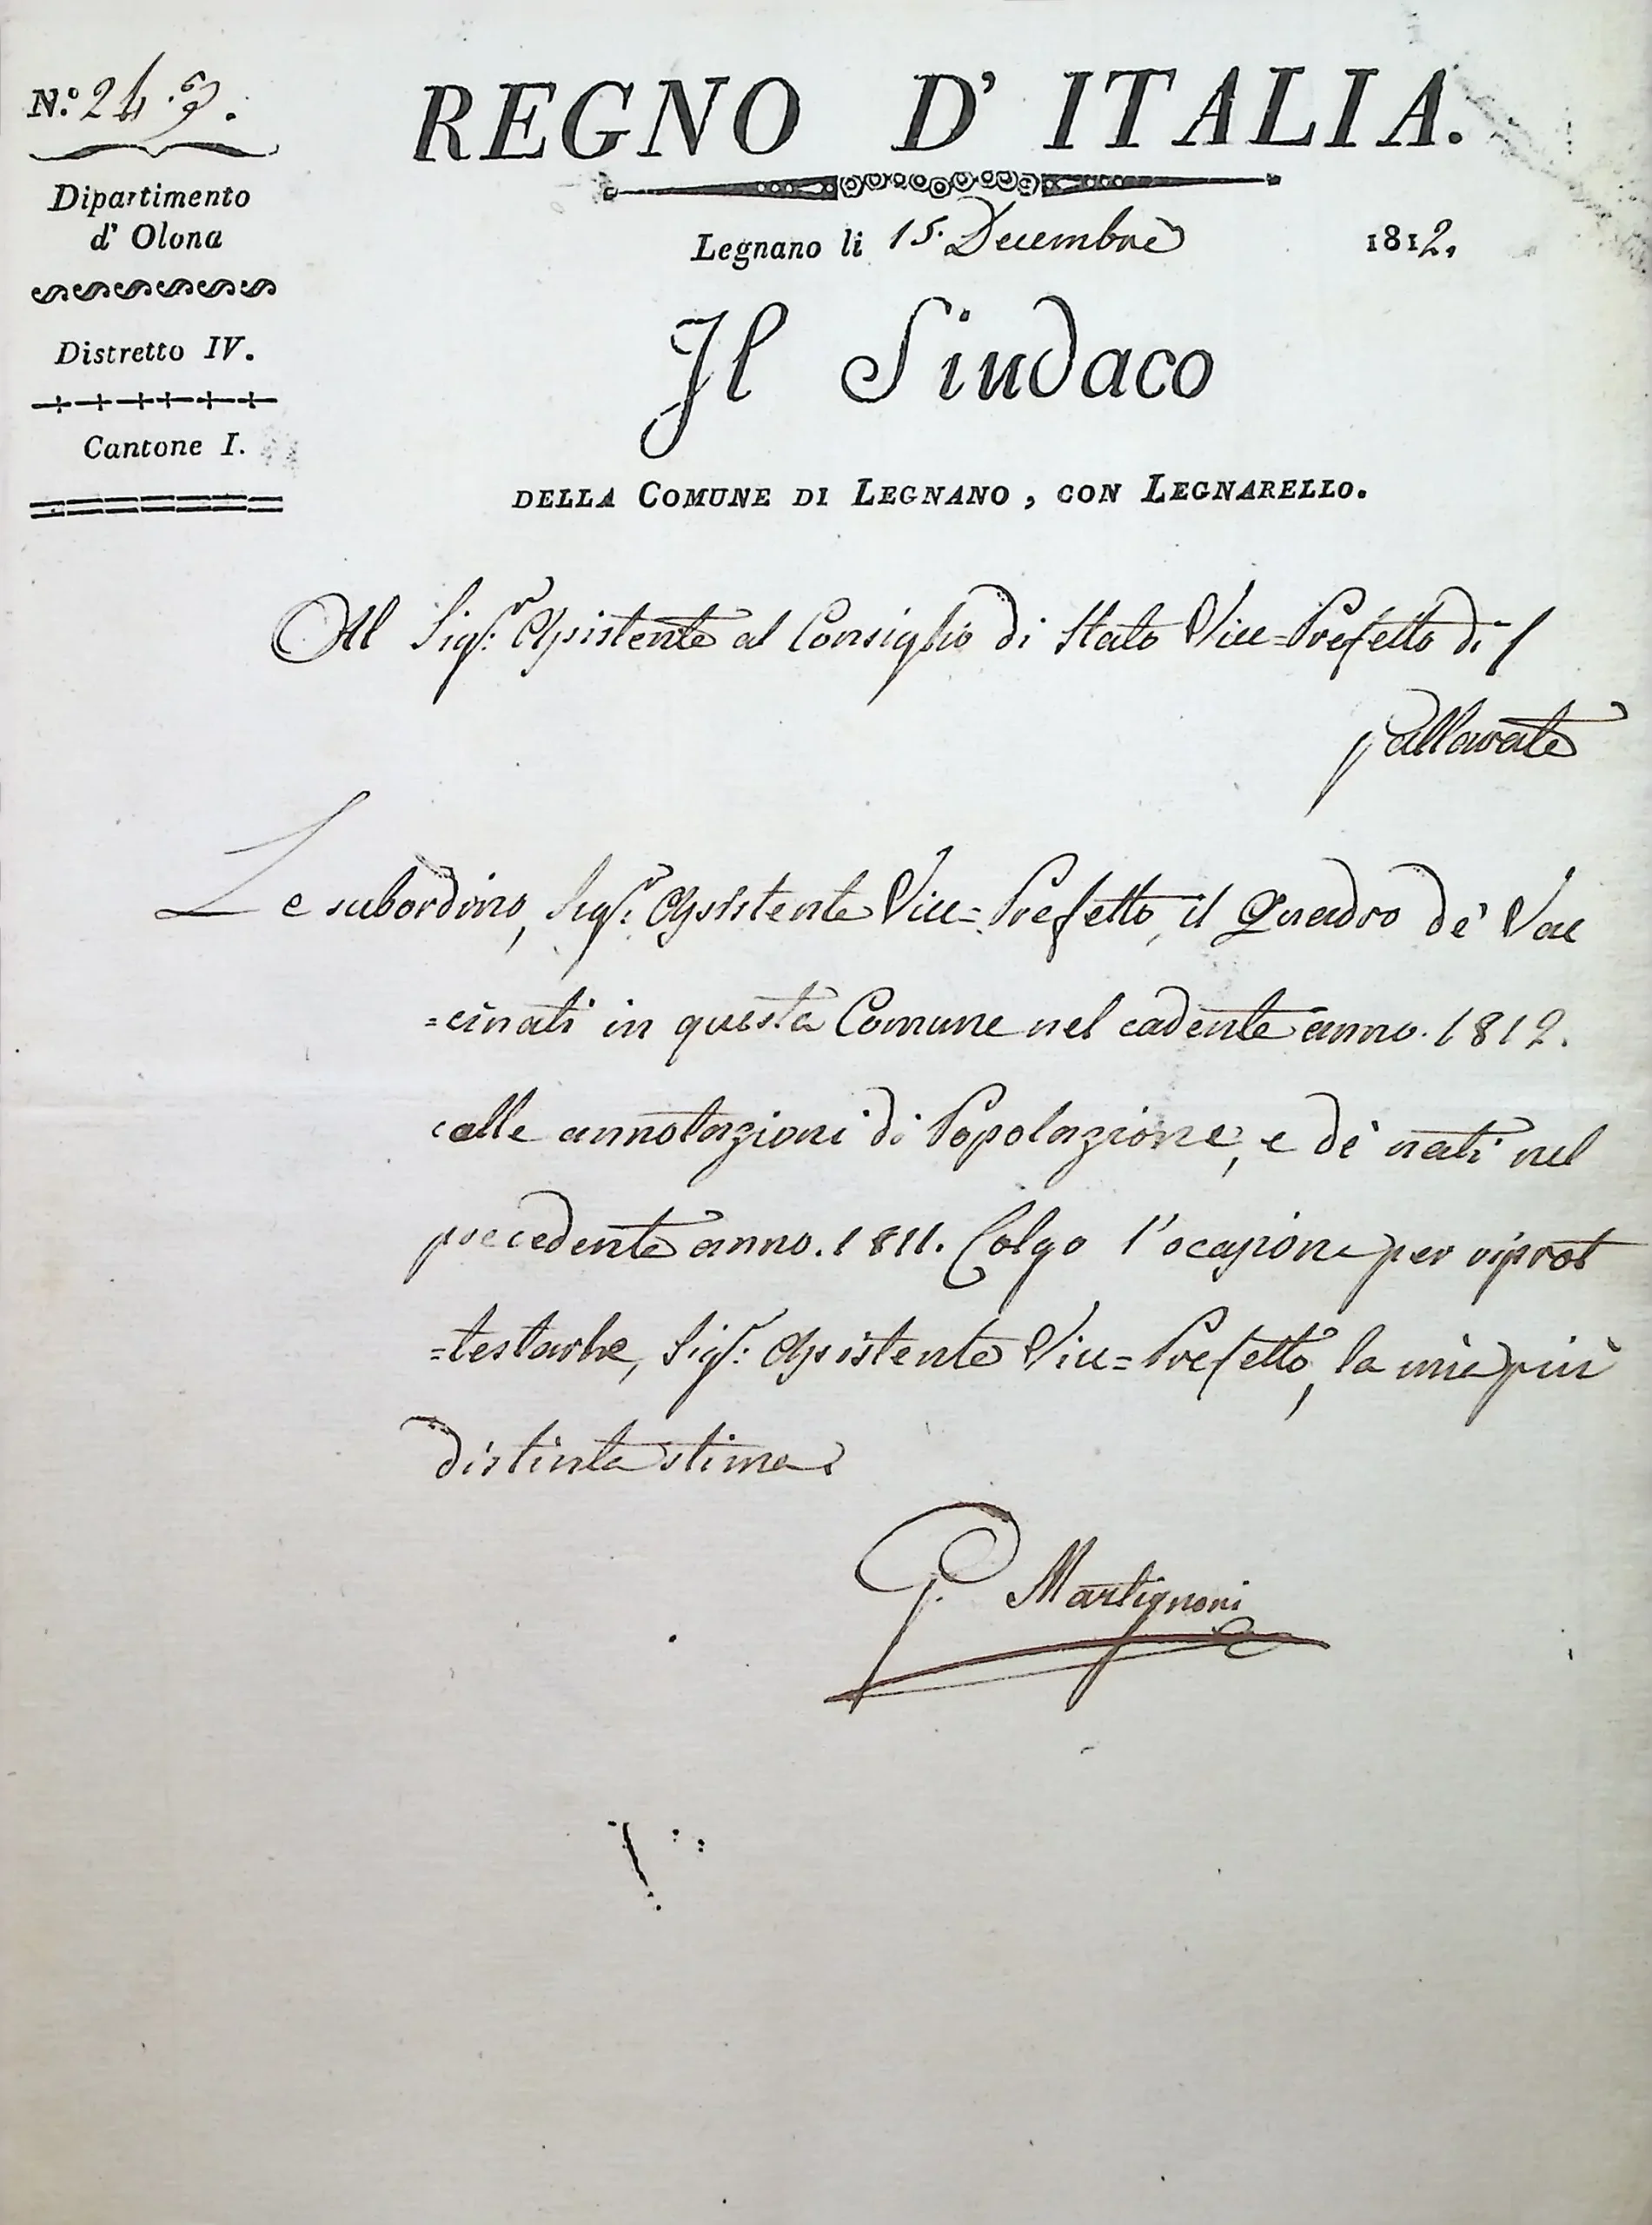 N.º 24.
REGNO D' ITALIA.
Dipartimento
d' Olona
Legnano li 15. Decembre 1812.
Distretto IV.
Il Sindaco
Cantone I.
DELLA COMUNE DI LEGNANO, CON LEGNARELLO.
Al Sigr. Assistente al Consiglio di Stato Vice=Prefetto di
Gallarate
Le subordino, Sigr. Assistente Vice=Prefetto, il Quadro de' Vac
=cinati in questa Comune nel cadente anno. 1812.
colle annotazioni di Popolazione, e de' nati nel
precedente anno. 1811. Colgo l'ocasione per riprot
=testarle, Sigr. Assistente Vice=Prefetto, la mia più
distinta stima.
G. Martignoni